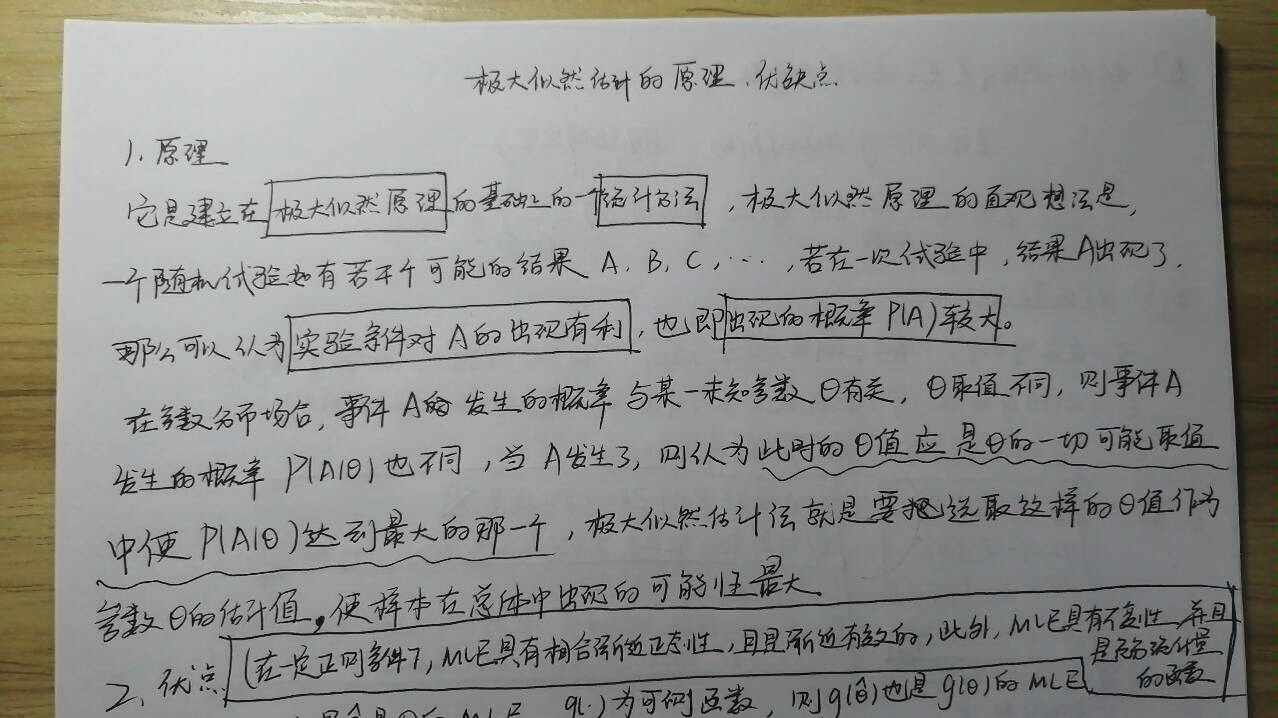 极大似然估计的原理、优缺点
1. 原理
它是建立在极大似然原理的基础上的一个统计方法，极大似然原理的直观想法是，
一个随机试验如有若干个可能的结果 A, B, C, ···，若在一次试验中，结果A出现了，
那么可以认为实验条件对A的出现有利，也即出现的概率P(A)较大。
在参数分布场合，事件A的发生的概率与某一未知参数θ有关，θ取值不同，则事件A
发生的概率P(A|θ)也不同，当A发生了，则认为此时的θ值应是θ的一切可能取值
中使P(A|θ)达到最大的那一个，极大似然估计法就是要把选取这样的θ值作为
参数θ的估计值，使样本在总体中出现的可能性最大
2. 优点（在一定正则条件下，MLE具有相合渐近正态性，且是渐近有效的，此外，MLE具有不变性 并且
是充分统计量
的函数
是θ的MLE g(·)为可测函数，则g(θ̂)也是g(θ)的MLE